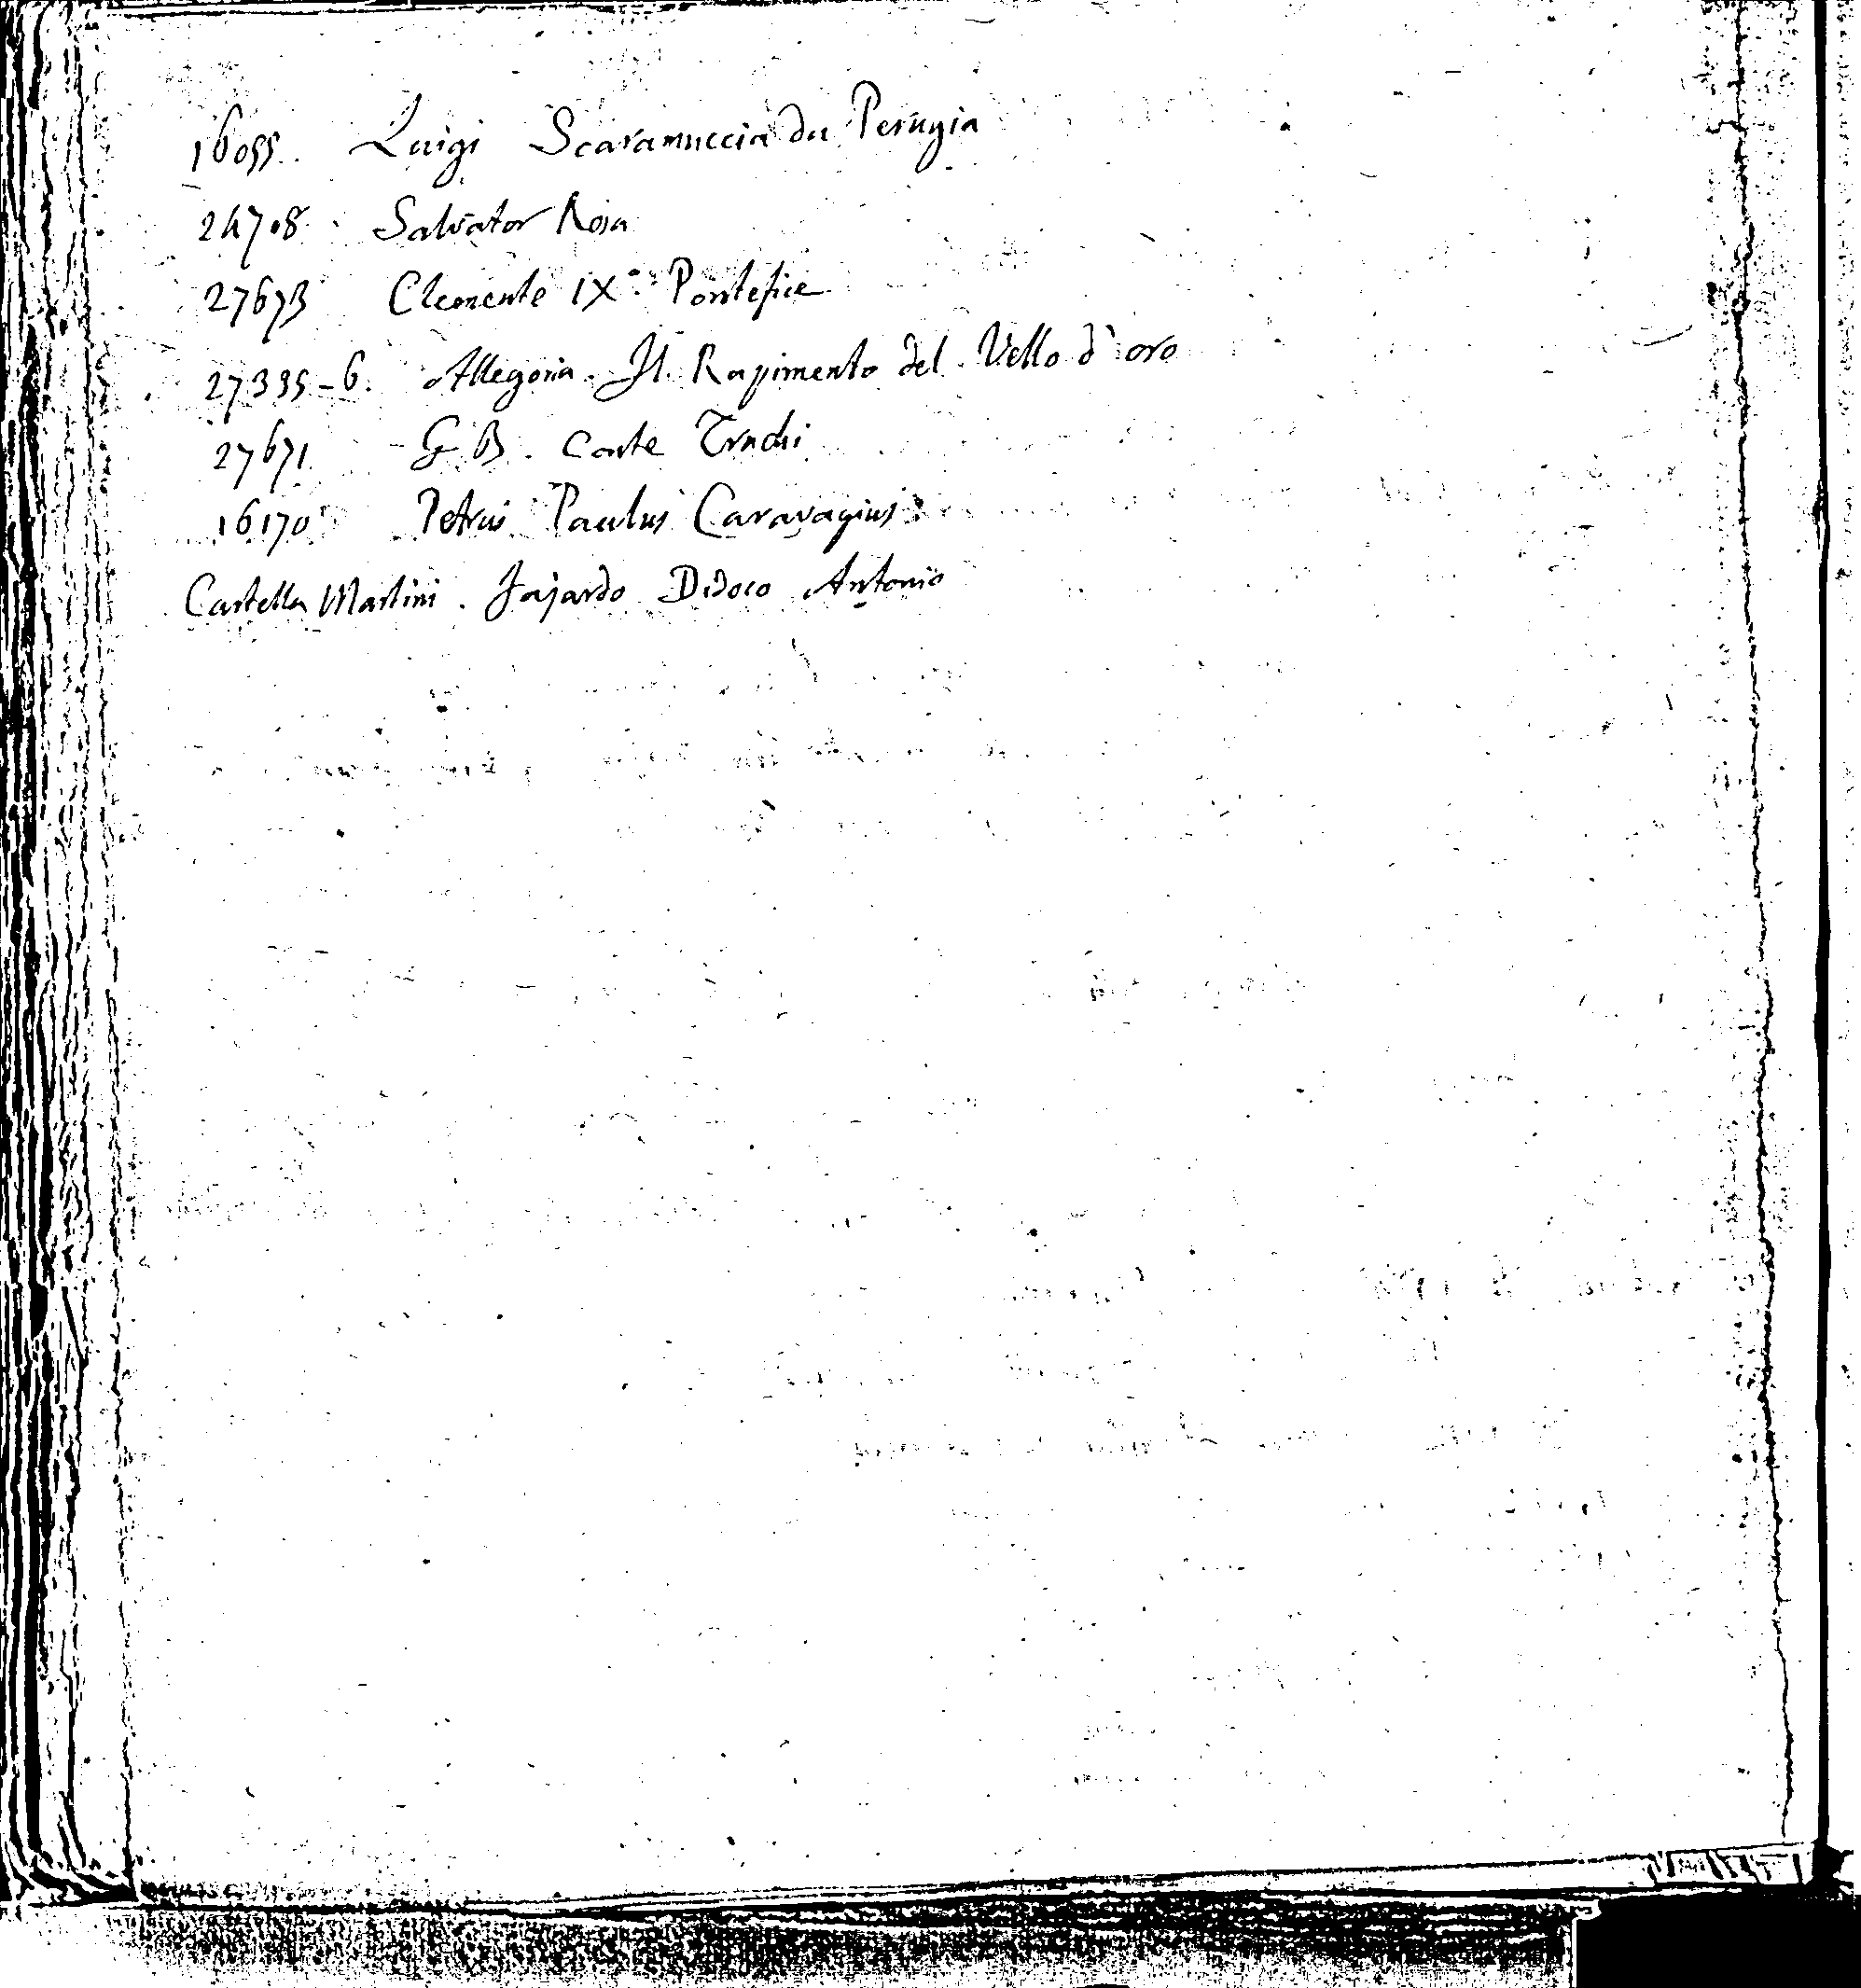 16055. Luigi Scaramuccia da Perugia
24708. Salvator Rosa
27673 Clemente IX° Pontefice
27335-6. Allegoria. Il Rapimento del Vello d'oro
27671 G B. Conte Truchi
16170 Petrus Paulus Caravagius
Cartella Martini. Fajardo Didoco Antonio